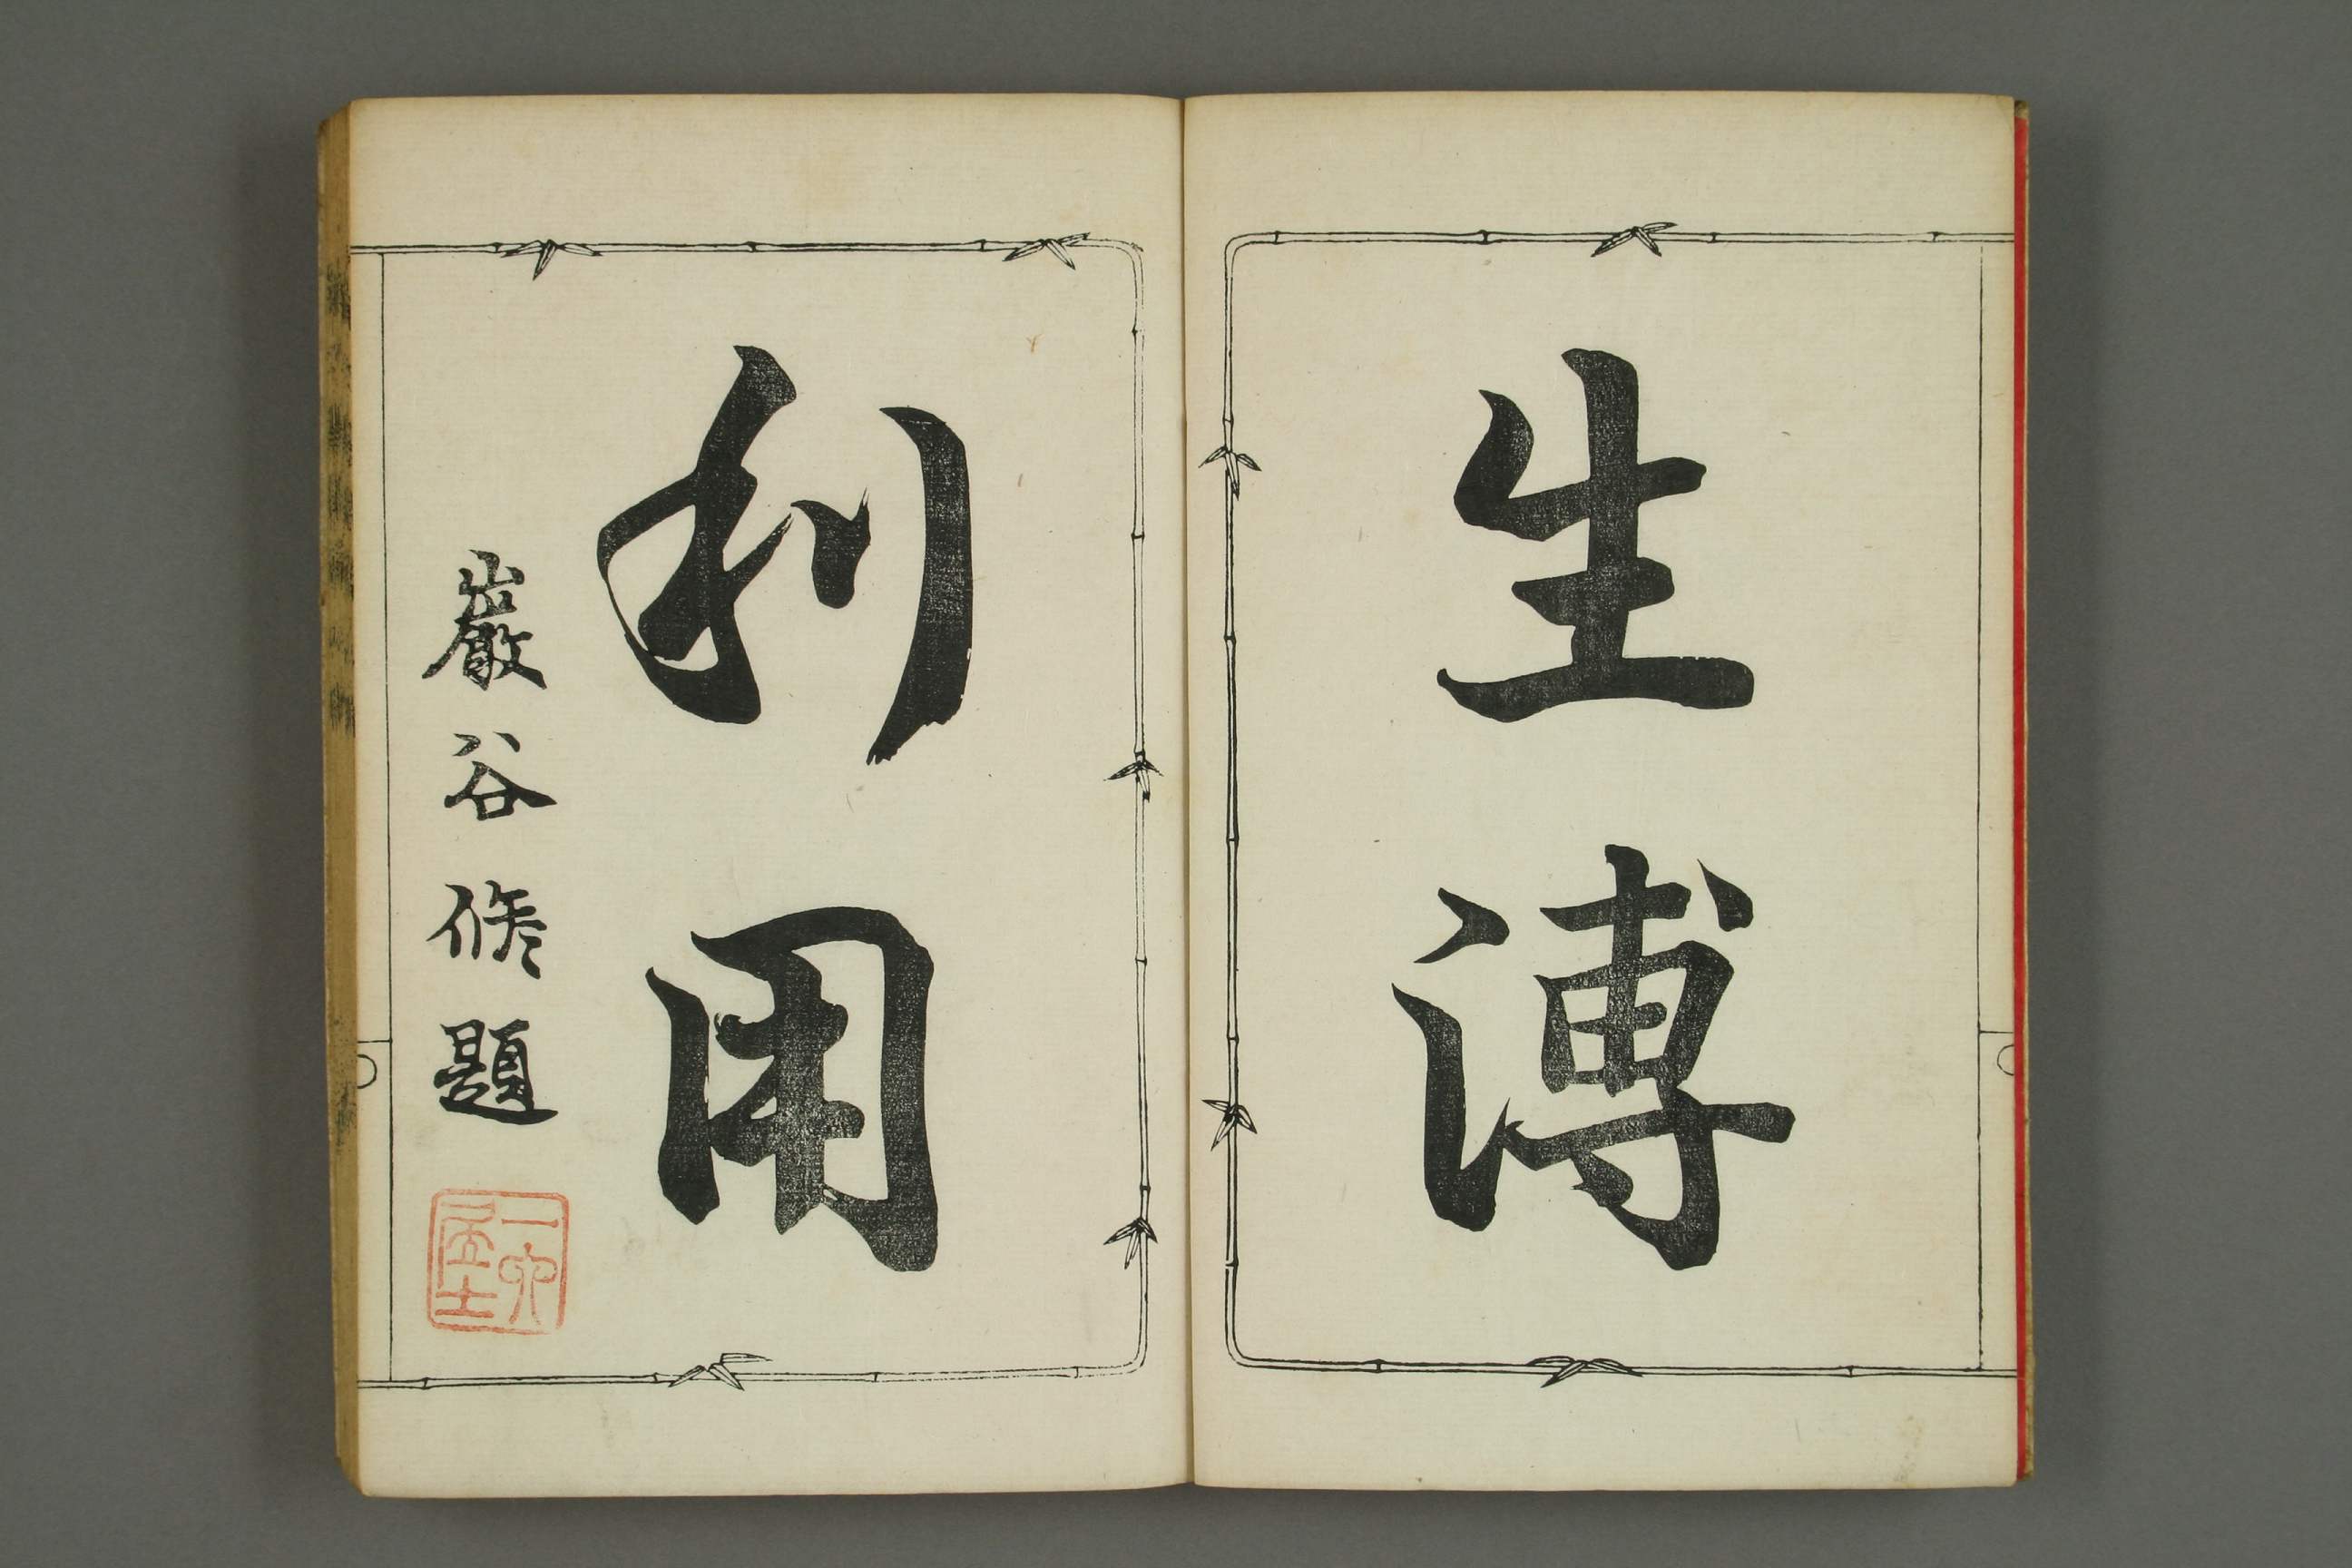 生溥
利用
巖谷修題
一六居士